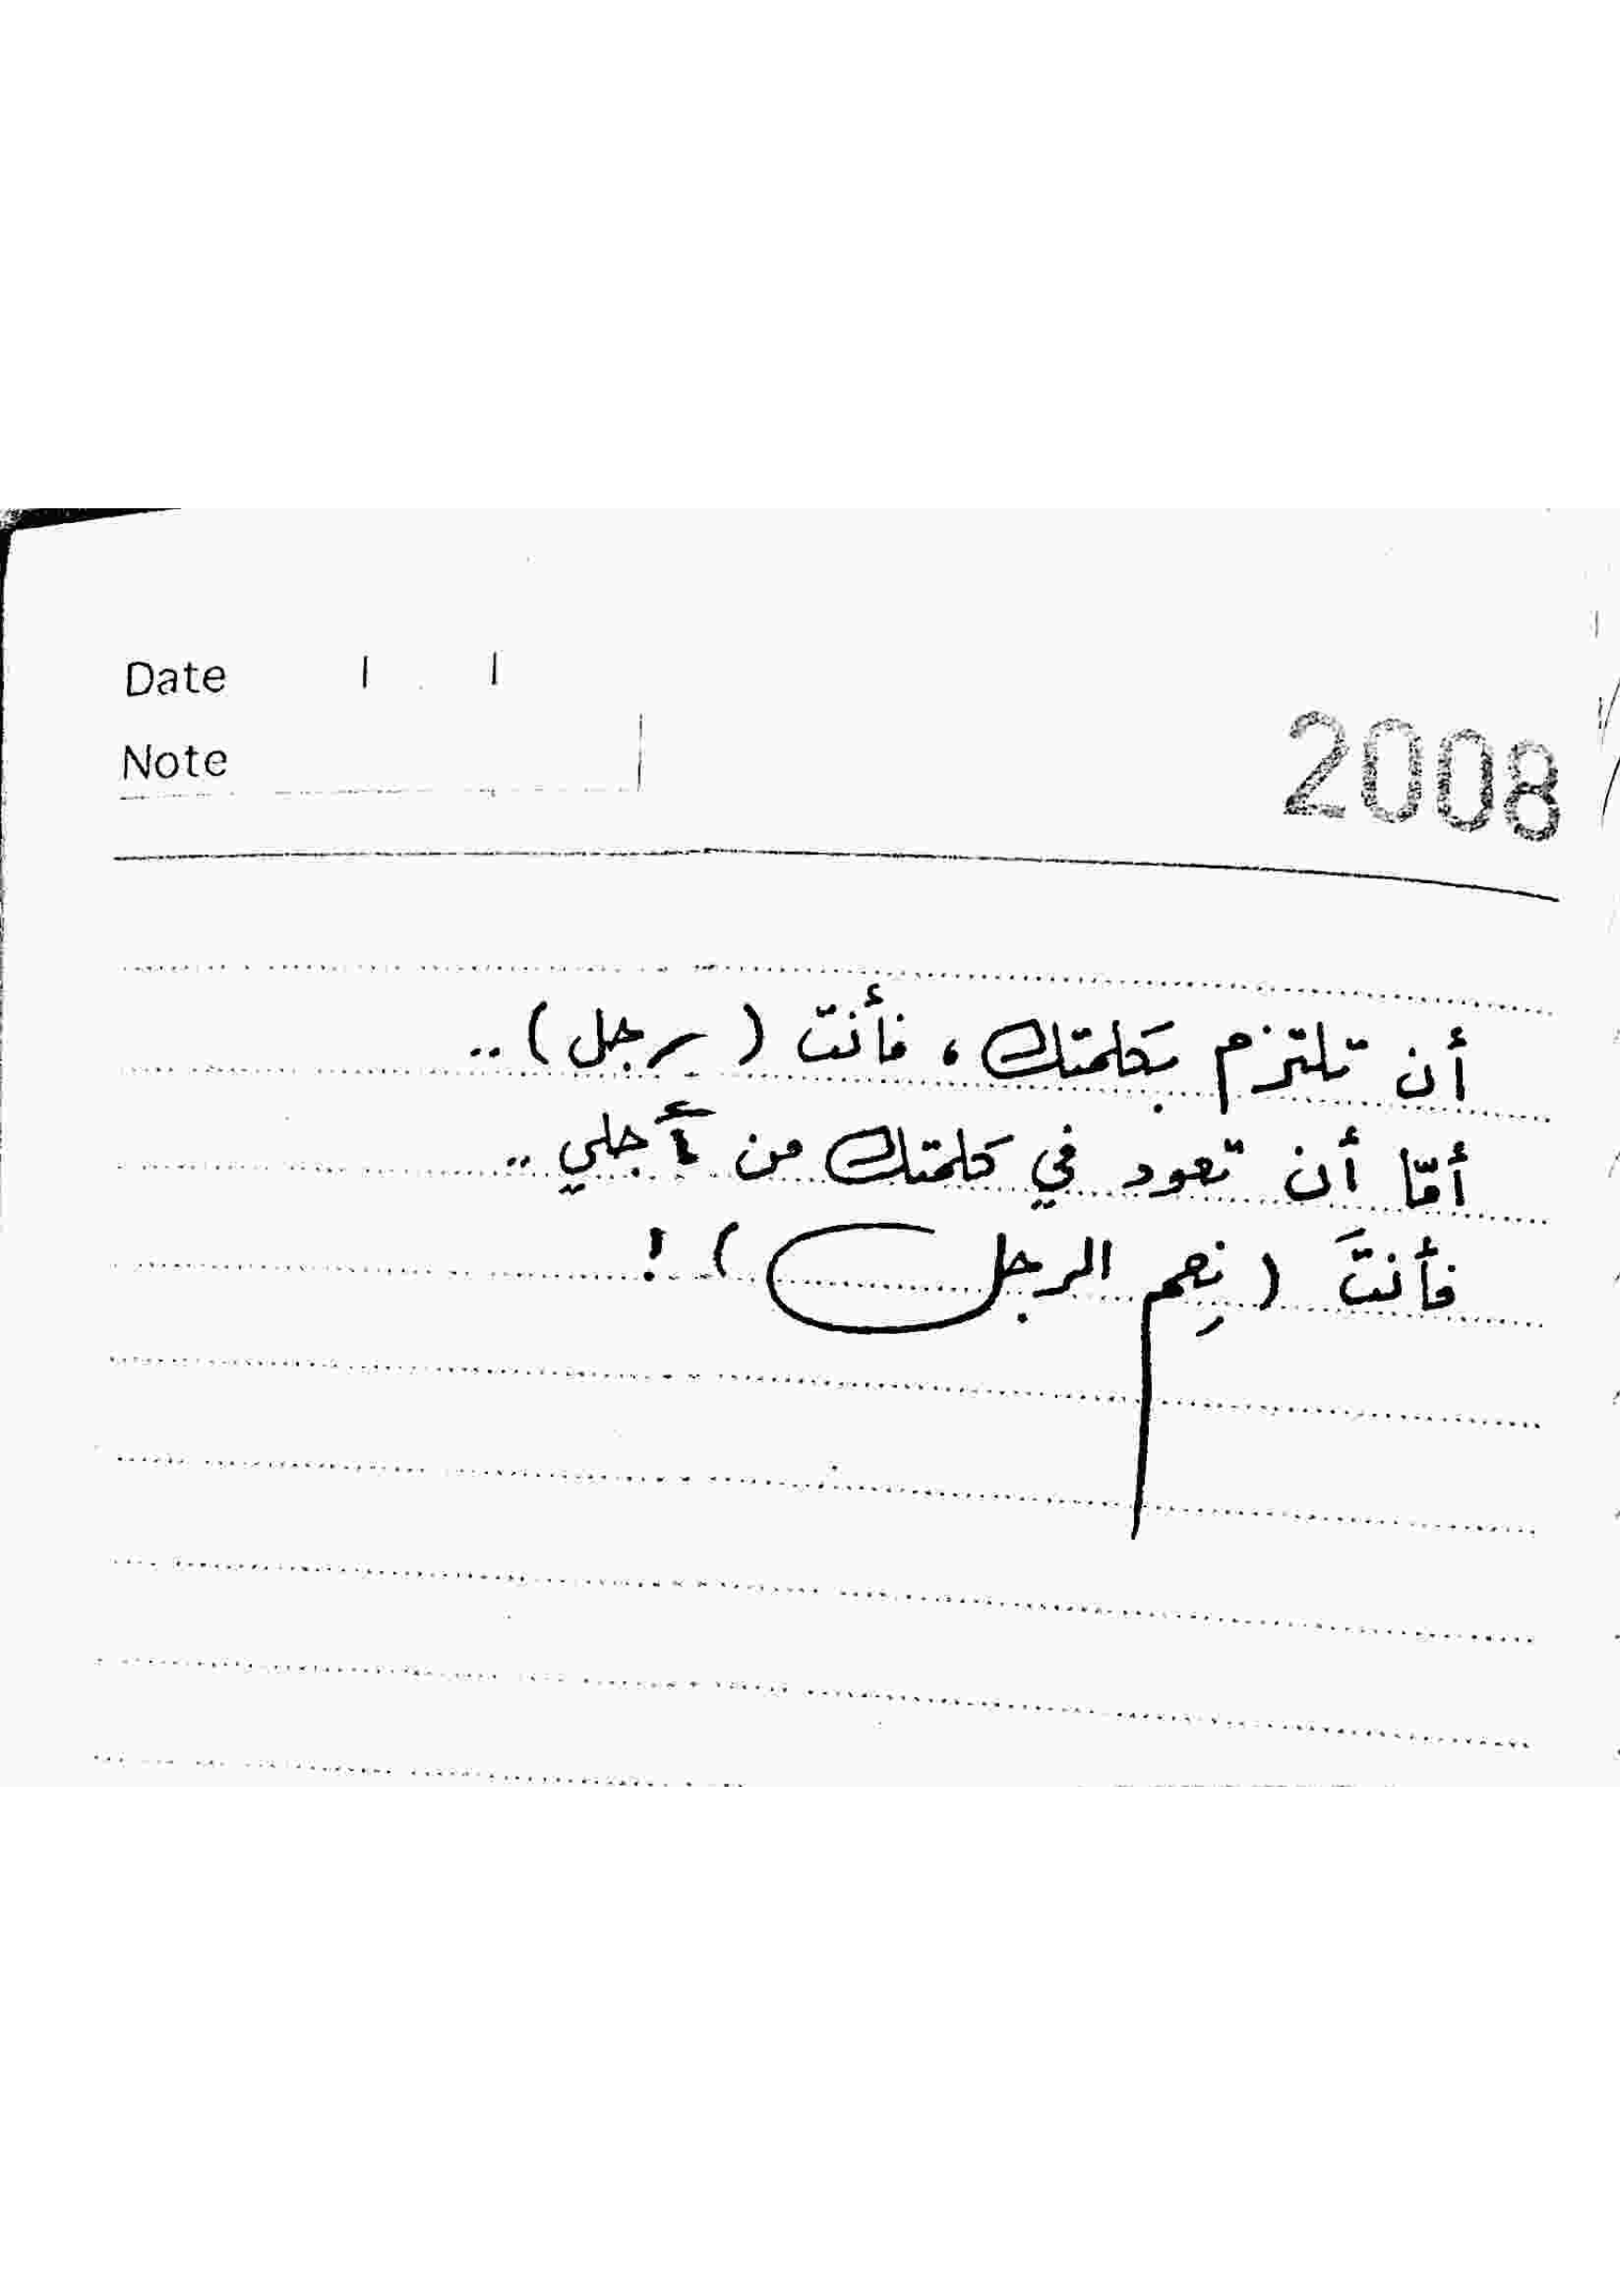 Date / /
Note
2008
أن تلتزم بكلمتك، فأنت ( رجل ) ..
أمّا أن تعود في كلمتك من أجلي ..
فأنتَ ( نِعم الرجل ) !